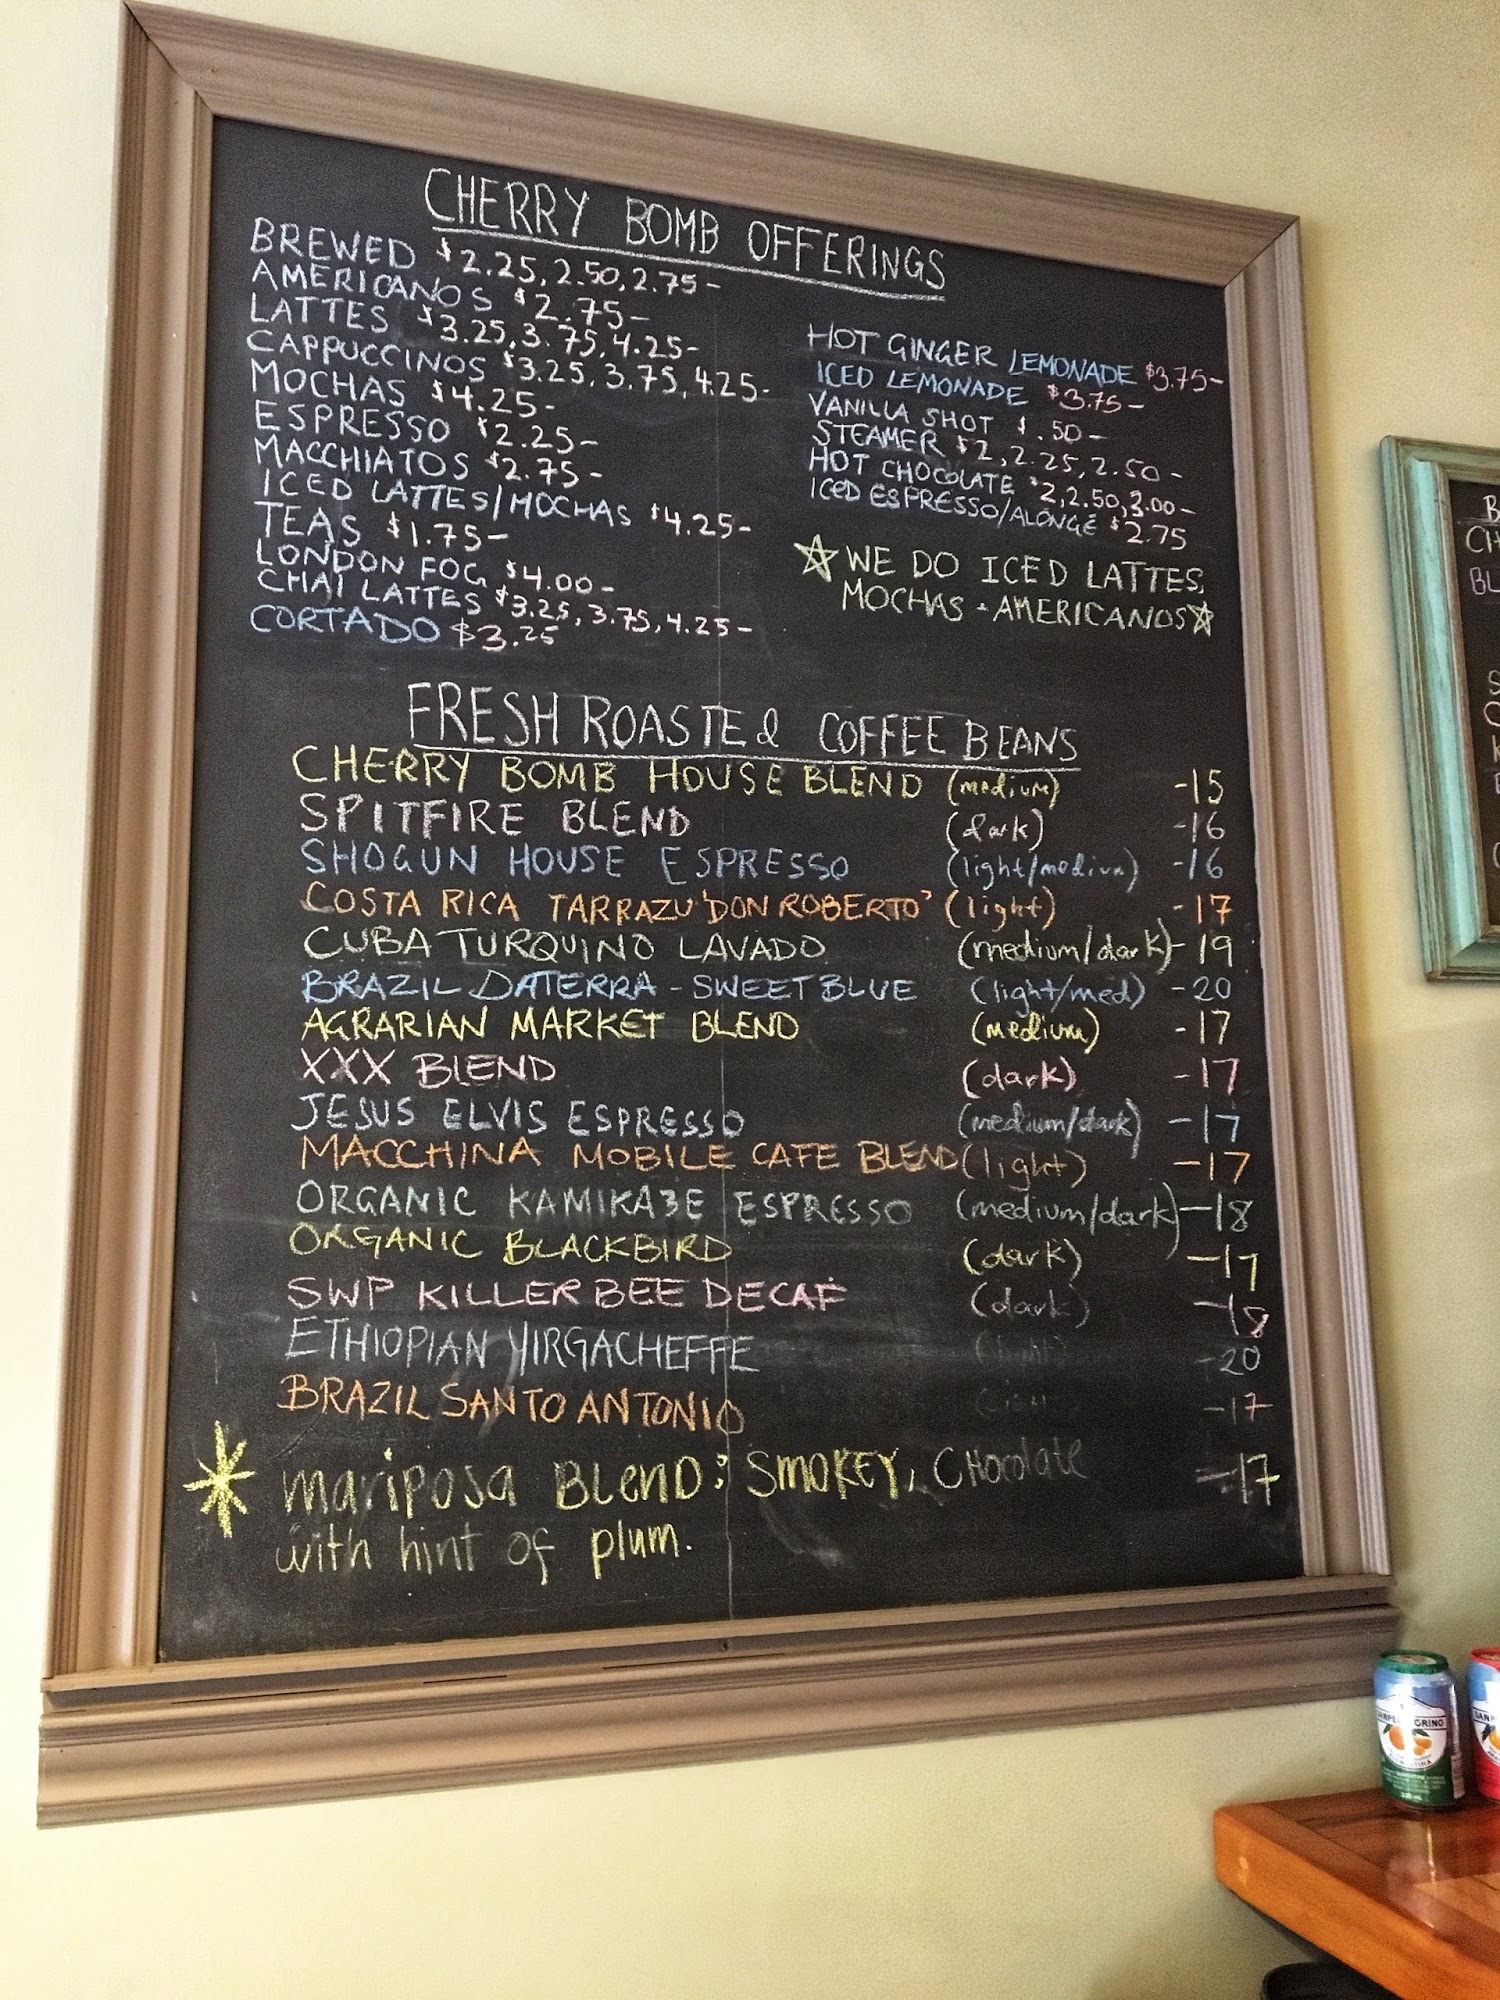 CHERRY BOMB OFFERINGS
BREWED $2.25, 2.50, 2.75-
AMERICANOS $2.75-
LATTES $3.25, 3.75, 4.25-
CAPPUCCINOS $3.25, 3.75, 4.25-
MOCHAS $4.25-
ESPRESSO $2.25-
MACCHIATOS $2.75-
ICED LATTES/MOCHAS $4.25-
TEAS $1.75-
LONDON FOG $4.00-
CHAI LATTES $3.25, 3.75, 4.25-
CORTADO $3.25
HOT GINGER LEMONADE $3.75-
ICED LEMONADE $3.75-
VANILLA SHOT $.50-
STEAMER $2, 2.25, 2.50-
HOT CHOCOLATE $2, 2.50, 3.00-
ICED ESPRESSO/ALONGÉ $2.75
☆ WE DO ICED LATTES,
MOCHAS - AMERICANOS ☆
FRESH ROASTEd COFFEE BEANS
CHERRY BOMB HOUSE BLEND (medium) -15
SPITFIRE BLEND (dark) -16
SHOGUN HOUSE ESPRESSO (light/medium) -16
COSTA RICA TARRAZU 'DON ROBERTO' (light) -17
CUBA TURQUINO LAVADO (medium/dark) -19
BRAZIL DATERRA - SWEET BLUE (light/med) -20
AGRARIAN MARKET BLEND (medium) -17
XXX BLEND (dark) -17
JESUS ELVIS ESPRESSO (medium/dark) -17
MACCHINA MOBILE CAFE BLEND (light) -17
ORGANIC KAMIKAZE ESPRESSO (medium/dark) -18
ORGANIC BLACKBIRD (dark) -17
SWP KILLER BEE DECAF (dark) -18
ETHIOPIAN YIRGACHEFFE -20
BRAZIL SANTO ANTONIO -17
* mariposa BLEND: SMOKEY, CHocolate -17
with hint of plum.